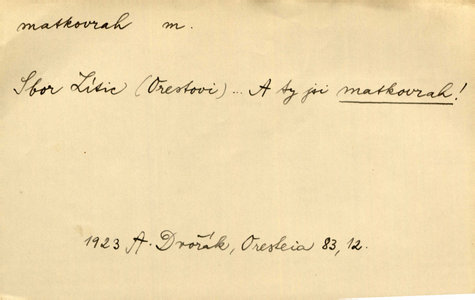 matkovrah m.
Sbor Lític (Orestovi) ... A ty jsi matkovrah!
1923 A. Dvořák, Oresteia 83, 12.